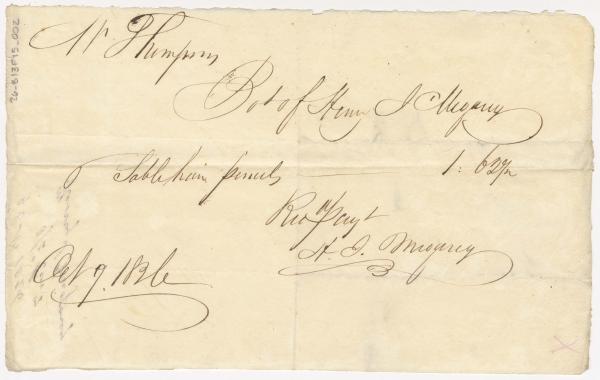 Mr Thompson
Bot of Henry J Megarey
7 Sable hair pencils 1:62½
Recd Payt
H. J. Megarey
Oct 9. 1826
26-B13F15-002
X